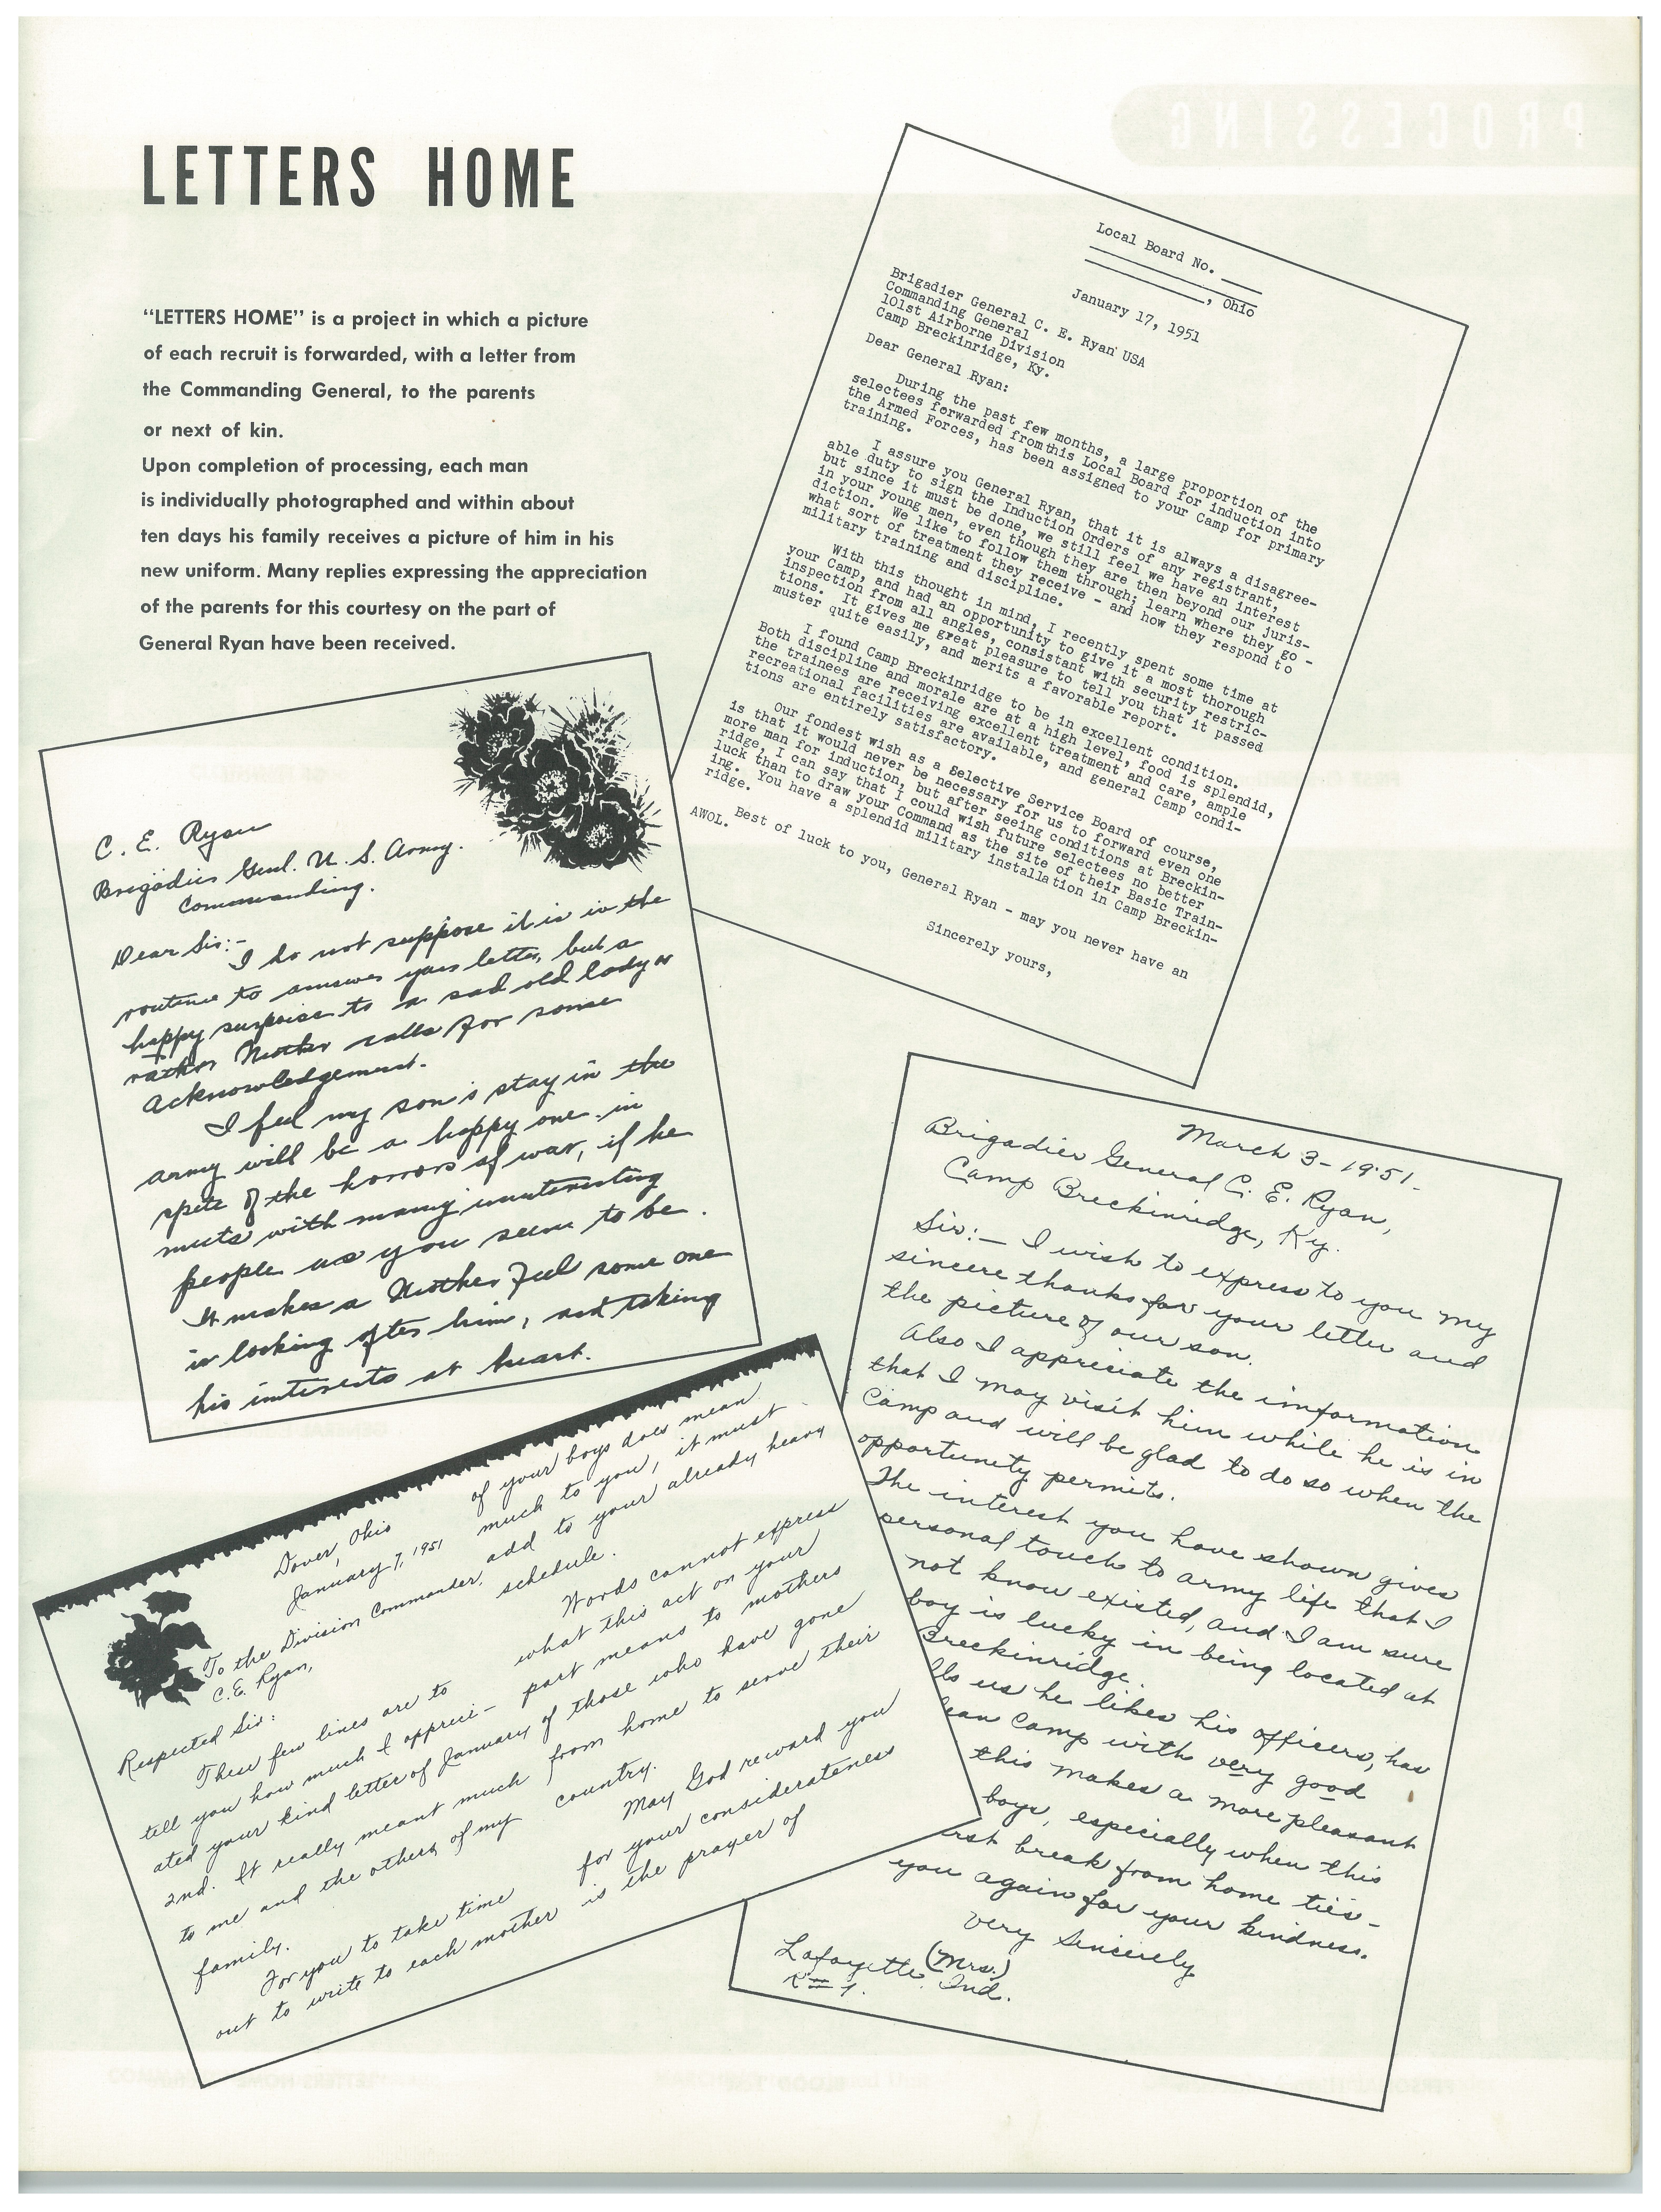 LETTERS HOME
"LETTERS HOME" is a project in which a picture
of each recruit is forwarded, with a letter from
the Commanding General, to the parents
or next of kin.
Upon completion of processing, each man
is individually photographed and within about
ten days his family receives a picture of him in his
new uniform. Many replies expressing the appreciation
of the parents for this courtesy on the part of
General Ryan have been received.
Local Board No. ____
____, Ohio
January 17, 1951
Brigadier General C. E. Ryan USA
Commanding General
101st Airborne Division
Camp Breckinridge, Ky.
Dear General Ryan:
During the past few months, a large proportion of the
selectees forwarded from this Local Board for induction into
the Armed Forces, has been assigned to your Camp for primary
training.
I assure you General Ryan, that it is always a disagree-
able duty to sign the Induction Orders of any registrant,
but since it must be done, we still feel we have an interest
in your young men, even though they are then beyond our juris-
diction. We like to follow them through; learn where they go -
what sort of treatment they receive - and how they respond to
military training and discipline.
With this thought in mind, I recently spent some time at
your Camp, and had an opportunity to give it a most thorough
inspection from all angles, consistant with security restric-
tions. It gives me great pleasure to tell you that it passed
muster quite easily, and merits a favorable report.
I found Camp Breckinridge to be in excellent condition.
Both discipline and morale are at a high level, food is splendid,
the trainees are receiving excellent treatment and care, ample
recreational facilities are available, and general Camp condi-
tions are entirely satisfactory.
Our fondest wish as a Selective Service Board of course,
is that it would never be necessary for us to forward even one
more man for induction, but after seeing conditions at Breckin-
ridge, I can say that I could wish future selectees no better
luck than to draw your Command as the site of their Basic Train-
ing. You have a splendid military installation in Camp Breckin-
ridge.
Best of luck to you, General Ryan - may you never have an
AWOL.
Sincerely yours,
C. E. Ryan
Brigadier Genl. U. S. Army.
Commanding.
Dear Sir:-
I do not suppose it is in the
routine to answer your letter, but a
happy surprise to a sad old lady or
rather Mother calls for some
acknowledgement.
I feel my son's stay in the
army will be a happy one in
spite of the horrors of war, if he
meets with many interesting
people as you seem to be.
It makes a Mother feel some one
is looking after him, and taking
his interests at heart.
Dover, Ohio
January 7, 1951
To the Division Commander,
C.E. Ryan,
Respected Sir:
These few lines are to
tell you how much I appreci-
ated your kind letter of January
2nd. It really meant much
to me and the others of my
family.
For you to take time
out to write to each mother
of your boys does mean
much to you, it must
add to your already heavy
schedule.
Words cannot express
what this act on your
part means to mothers
of those who have gone
from home to serve their
country.
May God reward you
for your considerateness
is the prayer of
March 3-1951-
Brigadier General C. E. Ryan,
Camp Breckinridge, Ky.
Sir:- I wish to express to you my
sincere thanks for your letter and
the picture of our son.
Also I appreciate the information
that I may visit him while he is in
Camp and will be glad to do so when the
opportunity permits.
The interest you have shown gives
personal touch to army life that I
not know existed, and I am sure
boy is lucky in being located at
Breckinridge.
lls us he likes his officers, has
ean Camp with very good
this makes a more pleasant
boys, especially when this
irst break from home ties-
you again for your kindness.
Very Sincerely
(Mrs.)
Lafayette Ind.
R # 7.